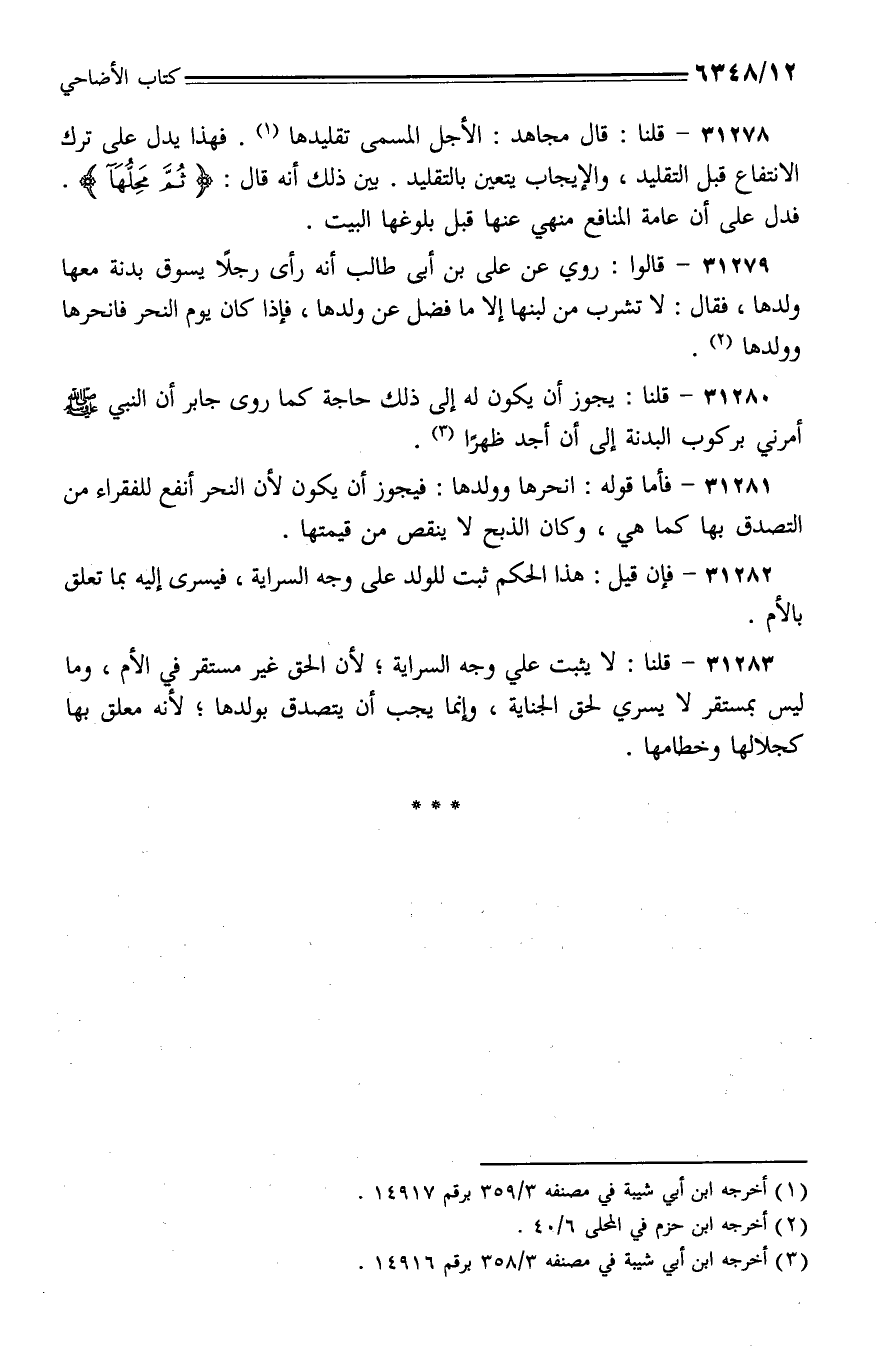 ٦٣٤٨/١٢ كتاب الأضاحي
٣١٢٧٨ – قلنا : قال مجاهد : الأجل المسمى تقليدها (١) . فهذا يدل على ترك
الانتفاع قبل التقليد ، والإيجاب يتعين بالتقليد . بين ذلك أنه قال : ﴿ ثُمَّ مَحِلُّهَآ ﴾ .
فدل على أن عامة المنافع منهي عنها قبل بلوغها البيت .
٣١٢٧٩ – قالوا : روي عن على بن أبى طالب أنه رأى رجلًا يسوق بدنة معها
ولدها ، فقال : لا تشرب من لبنها إلا ما فضل عن ولدها ، فإذا كان يوم النحر فانحرها
وولدها (٢) .
٣١٢٨٠ – قلنا : يجوز أن يكون له إلى ذلك حاجة كما روى جابر أن النبي ﷺ
أمرني بركوب البدنة إلى أن أجد ظهرًا (٣) .
٣١٢٨١ – فأما قوله : انحرها وولدها : فيجوز أن يكون لأن النحر أنفع للفقراء من
التصدق بها كما هي ، وكان الذبح لا ينقص من قيمتها .
٣١٢٨٢ – فإن قيل : هذا الحكم ثبت للولد على وجه السراية ، فيسرى إليه بما تعلق
بالأم .
٣١٢٨٣ – قلنا : لا يثبت علي وجه السراية ؛ لأن الحق غير مستقر في الأم ، وما
ليس بمستقر لا يسري لحق الجناية ، وإنما يجب أن يتصدق بولدها ؛ لأنه معلق بها
كجلالها وخطامها .
* * *
(١) أخرجه ابن أبي شيبة في مصنفه ٣٥٩/٣ برقم ١٤٩١٧ .
(٢) أخرجه ابن حزم في المحلى ٤٠/٦ .
(٣) أخرجه ابن أبي شيبة في مصنفه ٣٥٨/٣ برقم ١٤٩١٦ .